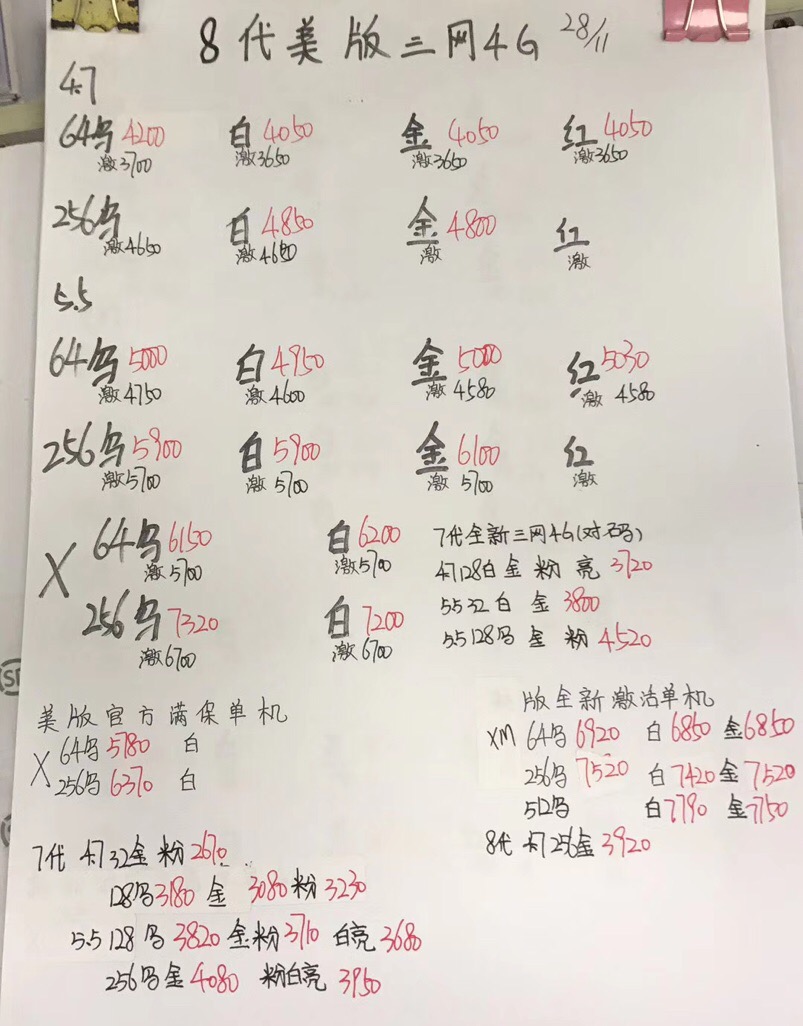 8代美版三网4G 28/11
4.7
64乌4200 白4050 金4050 红4050
激3700 激3650 激3650 激3650
256乌 白4850 金4800 红
激4650 激4650 激 激
5.5
64乌5000 白4950 金5000 红5030
激4750 激4600 激4580 激4580
256乌5900 白5900 金6100 红
激5700 激5700 激5700 激
X 64乌6150 白6200
激5700 激5700
256乌7320 白7200
激6700 激6700
7代全新三网4G(对码)
4.7 128白金 粉 亮 3720
5.5 32 白 金 3800
5.5 128乌 金 粉 4520
美版官方满保单机
X 64乌5780 白
256乌6370 白
版全新激活单机
XM 64乌6920 白6850 金6850
256乌7520 白7420 金7520
512乌 白7790 金7750
8代 4.7 256金3920
7代 4.7 32金 粉2670
128乌3180 金 3080 粉3230
5.5 128乌3820 金粉3710 白亮3680
256乌金4080 粉白亮3950